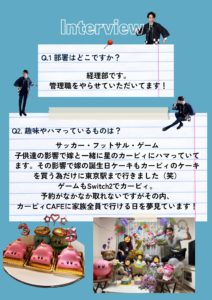 Interview
Q.1 部署はどこですか？
経理部です。
管理職をやらせていただいてます！
Q2. 趣味やハマっているものは？
サッカー・フットサル・ゲーム
子供達の影響で嫁と一緒に星のカービィにハマっていて
ます。その影響で嫁の誕生日ケーキもカービィのケーキ
を買う為だけに東京駅まで行きました（笑）
ゲームもSwitch2でカービィ。
予約がなかなか取れないですがその内、
カービィCAFEに家族全員で行ける日を夢見ています！